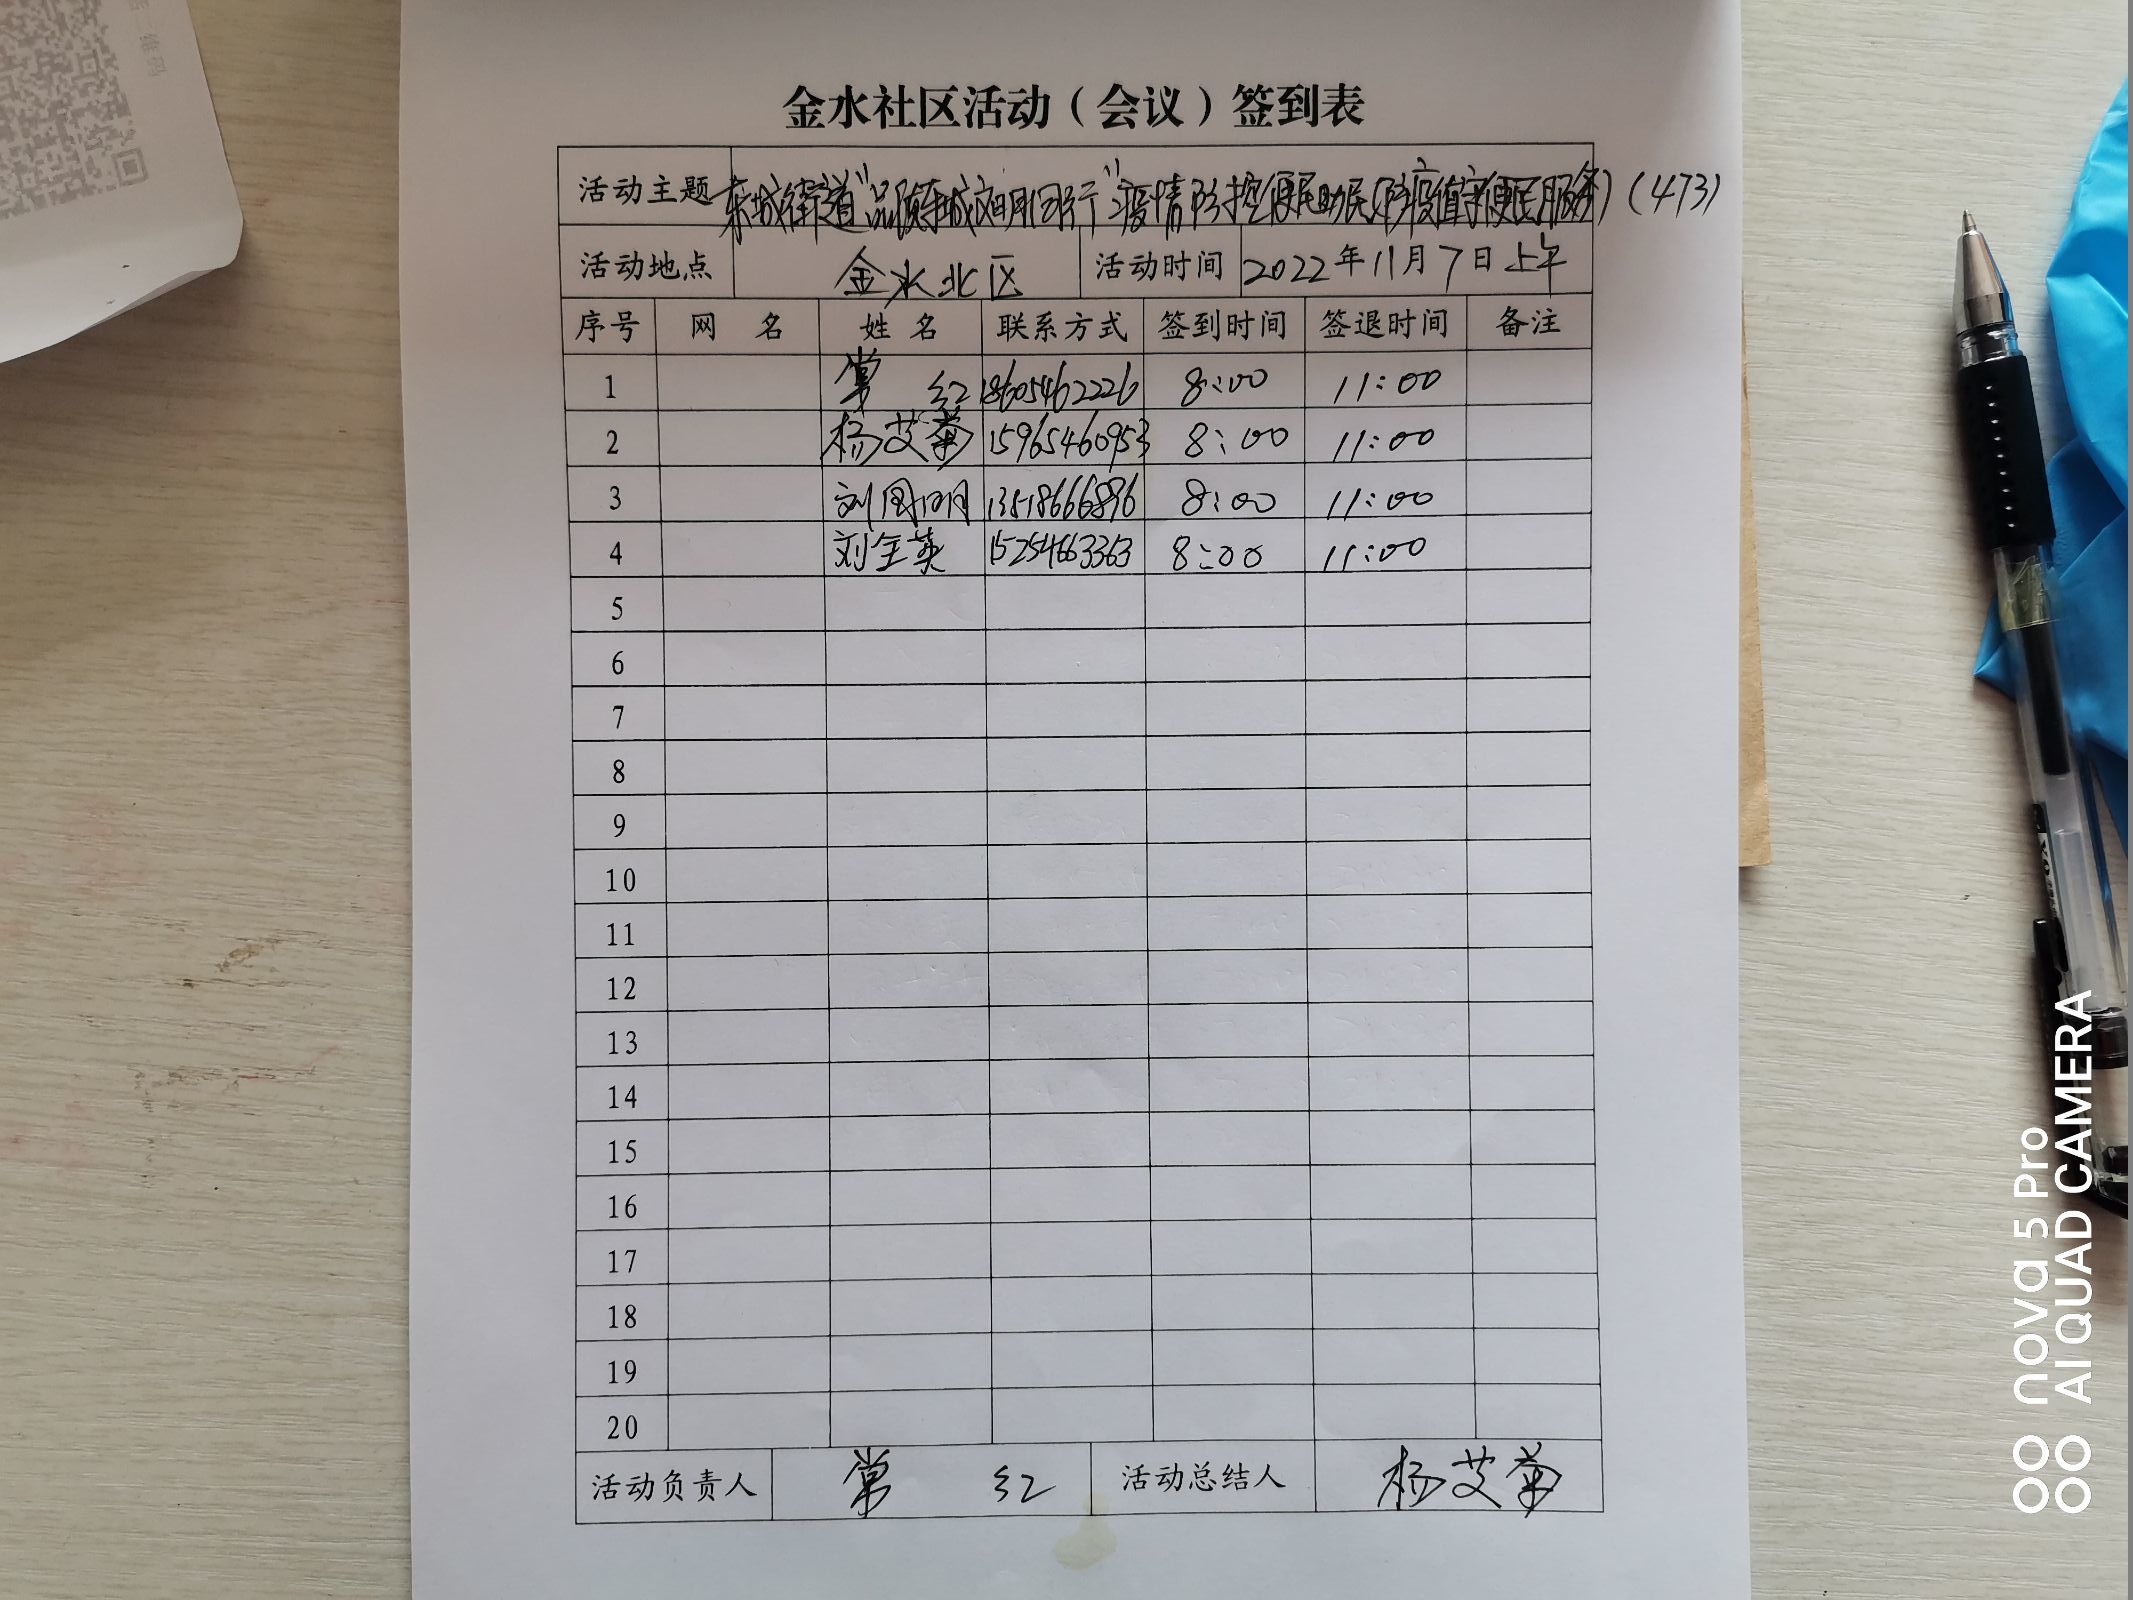 金水社区活动（会议）签到表
活动主题 东城街道"品质东城文明同行"疫情防控便民助民（防疫值守便民服务）（473）
活动地点 金水北区 活动时间 2022年11月7日上午
序号 网 名 姓 名 联系方式 签到时间 签退时间 备注
1 常 红 18605462226 8:00 11:00
2 杨艾菊 15965460953 8:00 11:00
3 刘同明 13518666896 8:00 11:00
4 刘全英 15254663363 8:00 11:00
5
6
7
8
9
10
11
12
13
14
15
16
17
18
19
20
活动负责人 常 红 活动总结人 杨艾菊
nova 5 Pro
AI QUAD CAMERA